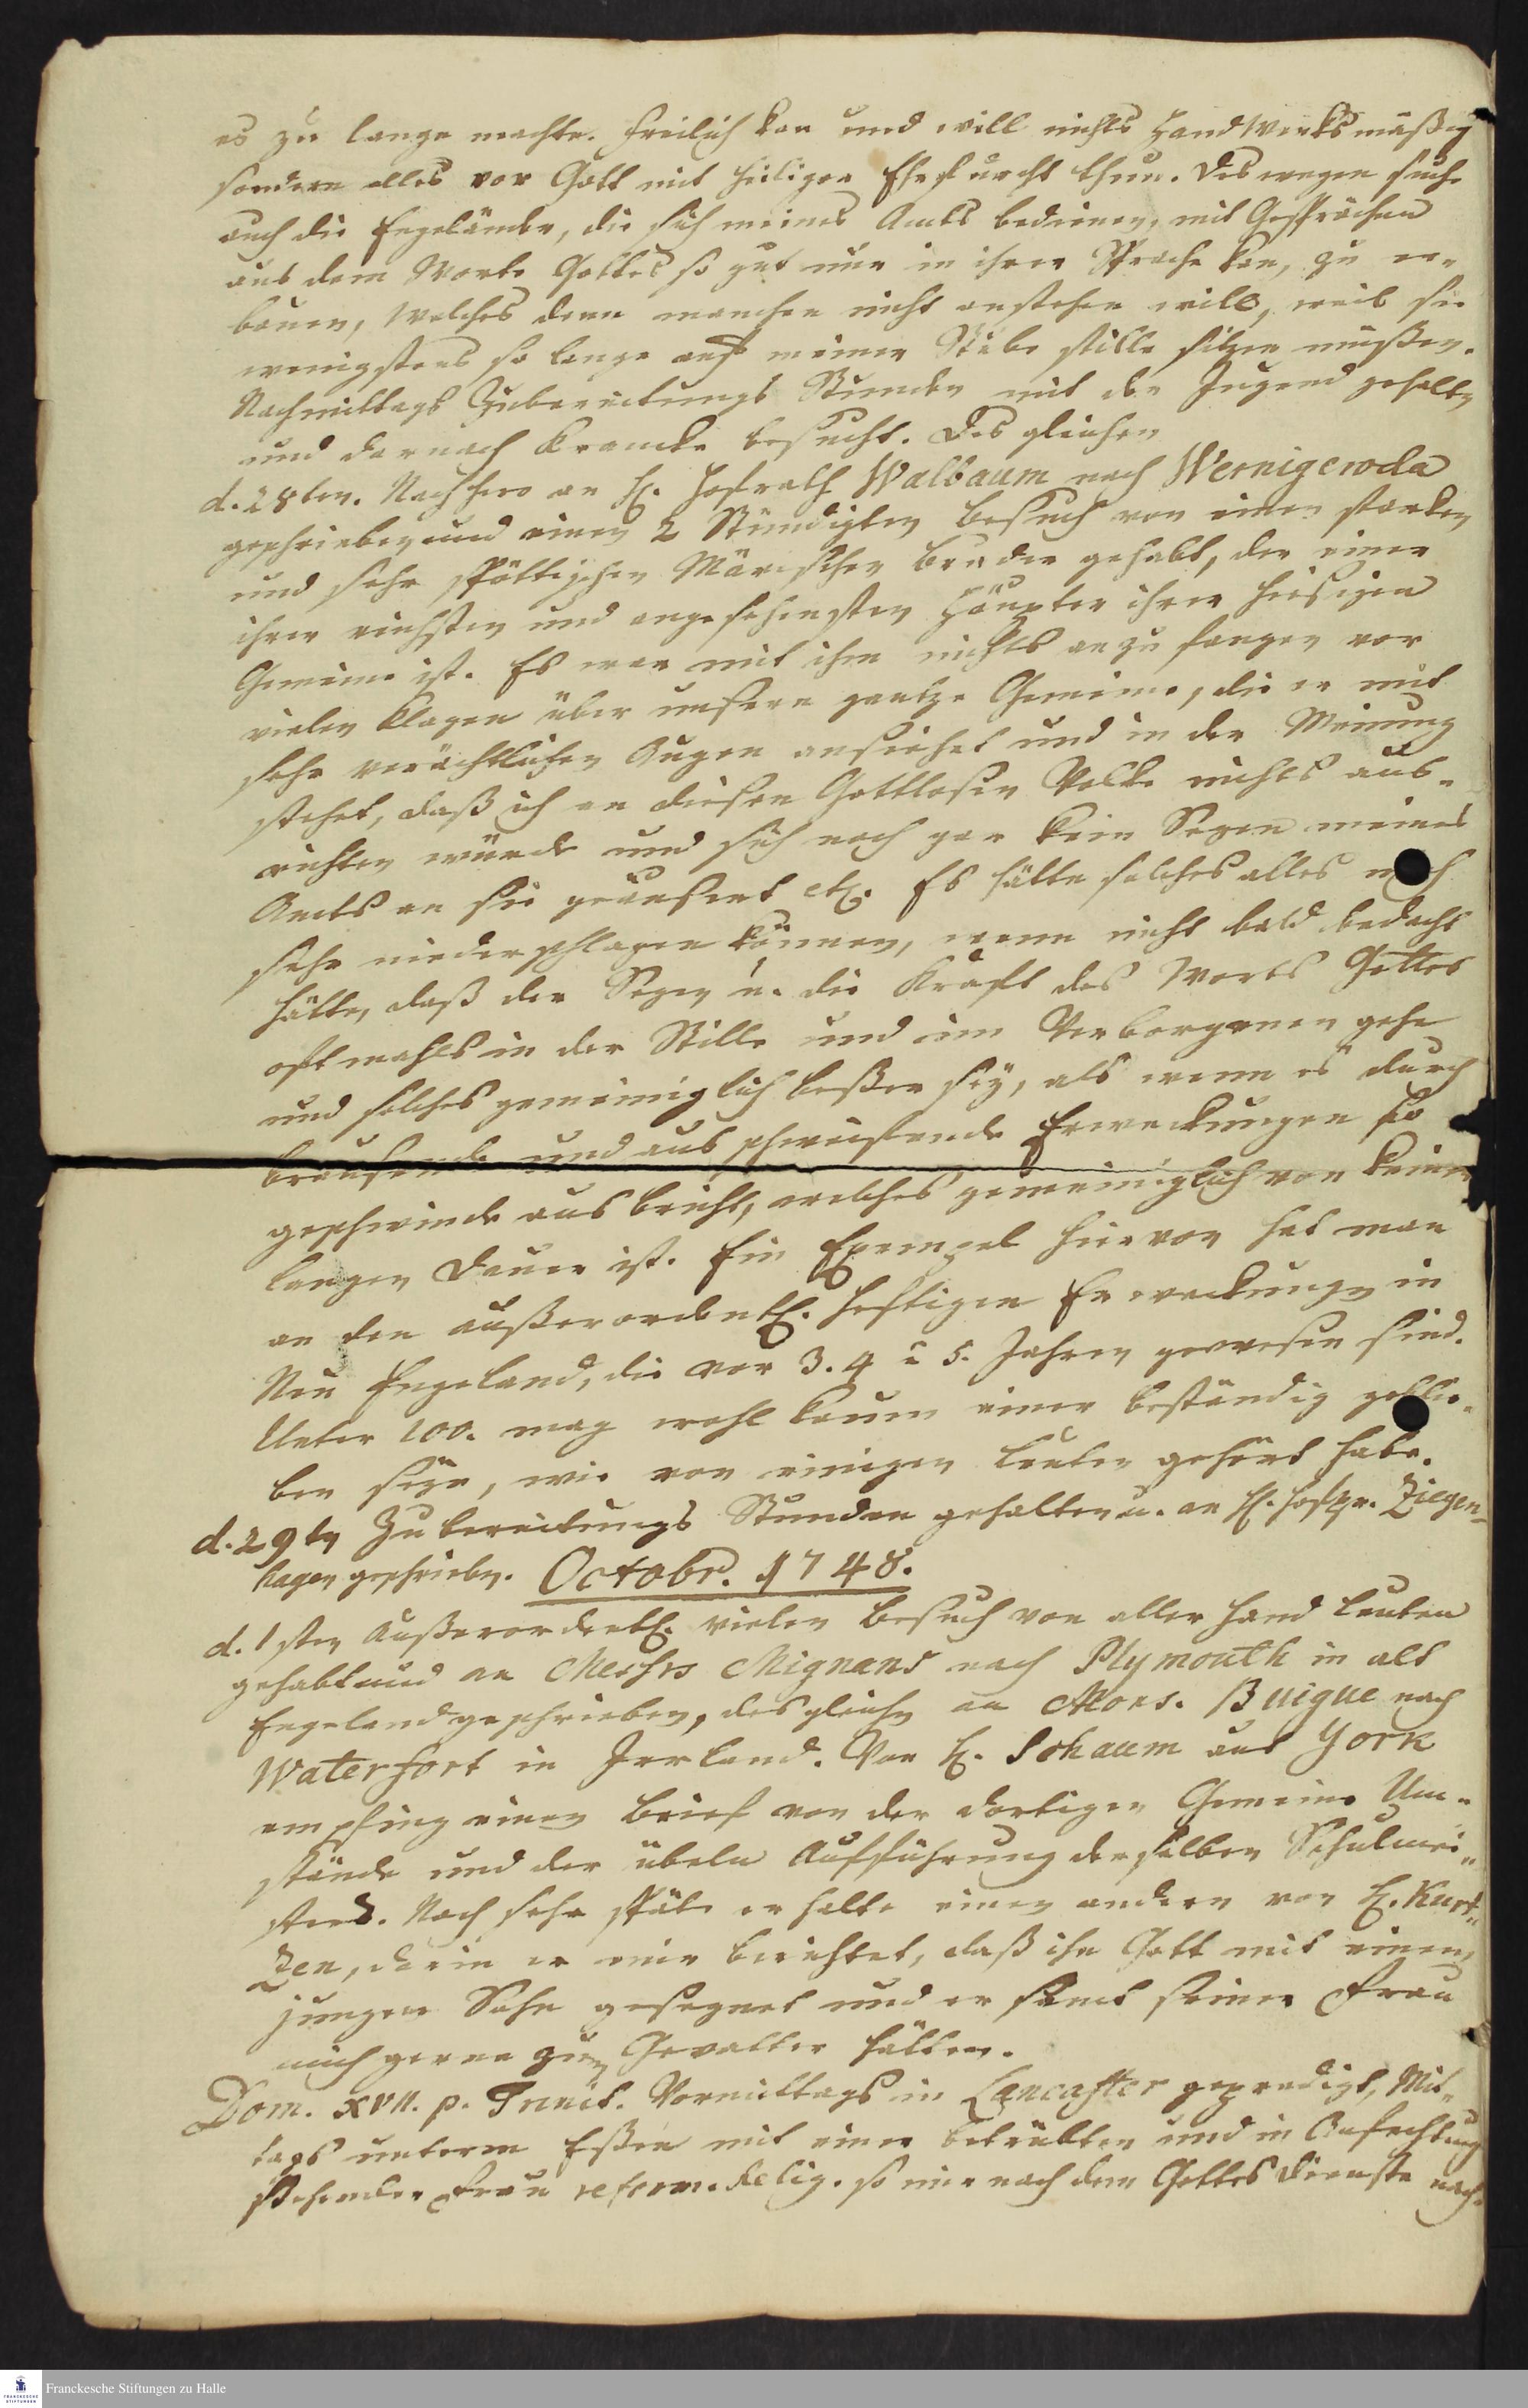 es zu lange machte. Freilich kan und will nichts Handwerksmäßig
sondern alles vor Gott mit heiliger Ehrfurcht thun. Deswegen suche
auch die Engeländer, die sich meines Amts bedienen, mit Gesprächen
aus dem Worte Gottes so gut nur in ihrer Sprache kan, zu er-
bauen, welches denn manchen nicht anstehen will, weil sie
wenigstens so lange auf meiner Stube stille sitzen müßen.
Nachmittags Zubereitungs Stunden mit der Jugend gehalten
und darnach Krancke besucht. Des gleichen
d. 28ten. Nachhero an H. Hofrath Walbaum nach Wernigeroda
geschrieben und einen 2 Stündigten Besuch von einen starcken
und sehr spöttischen Märischen Bruder gehabt, der einer
ihrer reichsten und angesehensten Häupter ihrer hiesigen
Gemeine ist. Es war mit ihm nichts anzufangen vor
vielen Klagen über unsere gantze Gemeine, die er mit
sehr verächtlichen Augen ansiehet und in der Meinung
stehet, daß ich an diesen Gottlosen Volcke nichts aus-
richten würde und sich noch gar kein Segen meines
Amts an sie geäusert etc. Es hätte solches alles mich
sehr niederschlagen können, wenn nicht bald bedacht
hätte, daß der Segen u. die Kraft des Worts Gottes
oftmahls in der Stille und im Verborgenen gehe
und solches gemeiniglich beßer sey, als wenn es durch
brausende und ausschweifende Erweckungen so
geschwinde ausbricht, welches gemeiniglich von keiner
langen Dauer ist. Ein Exempel hiervon hat man
an den außerordentl. heftigen Erweckungen in
Neu Engeland, die vor 3. 4 à 5. Jahren gewesen sind.
Unter 100. mag wohl kaum einer beständig geblie-
ben seyn, wie von einigen Leuten gehört habe.
d. 29ten Zubereitungs Stunden gehalten u. an H. Hofpr. Ziegen-
hagen geschrieben. Octobr. 1748.
d. 1sten Außerordentl. vielen Besuch von aller hand Leuten
gehabt und an Messrs Mignans nach Plymouth in alt
Engeland geschrieben, desgleichen an Mons. Buigue nach
Waterfort in Irrland. Von H. Schaum aus York
empfing einen Brief von der dortigen Gemeine Um-
stände und der übeln Aufführung derselben Schulmei-
sters. Noch sehr späte erhalte einen andern von H. Kurt-
zen, darin er mir berichtet, daß ihn Gott mit einen
jungen Sohn gesegnet und er samt seiner Frau
mich gerne zum Gevatter hätten.
Dom. XVII. p. Trinit. Vormittags in Lancaster gepredigt, Mit-
tags unterm Eßen mit einer betrübten und in Anfechtung
stehenden Frau reform. Relig. so mir nach dem Gottesdienste nach-
Franckesche Stiftungen zu Halle